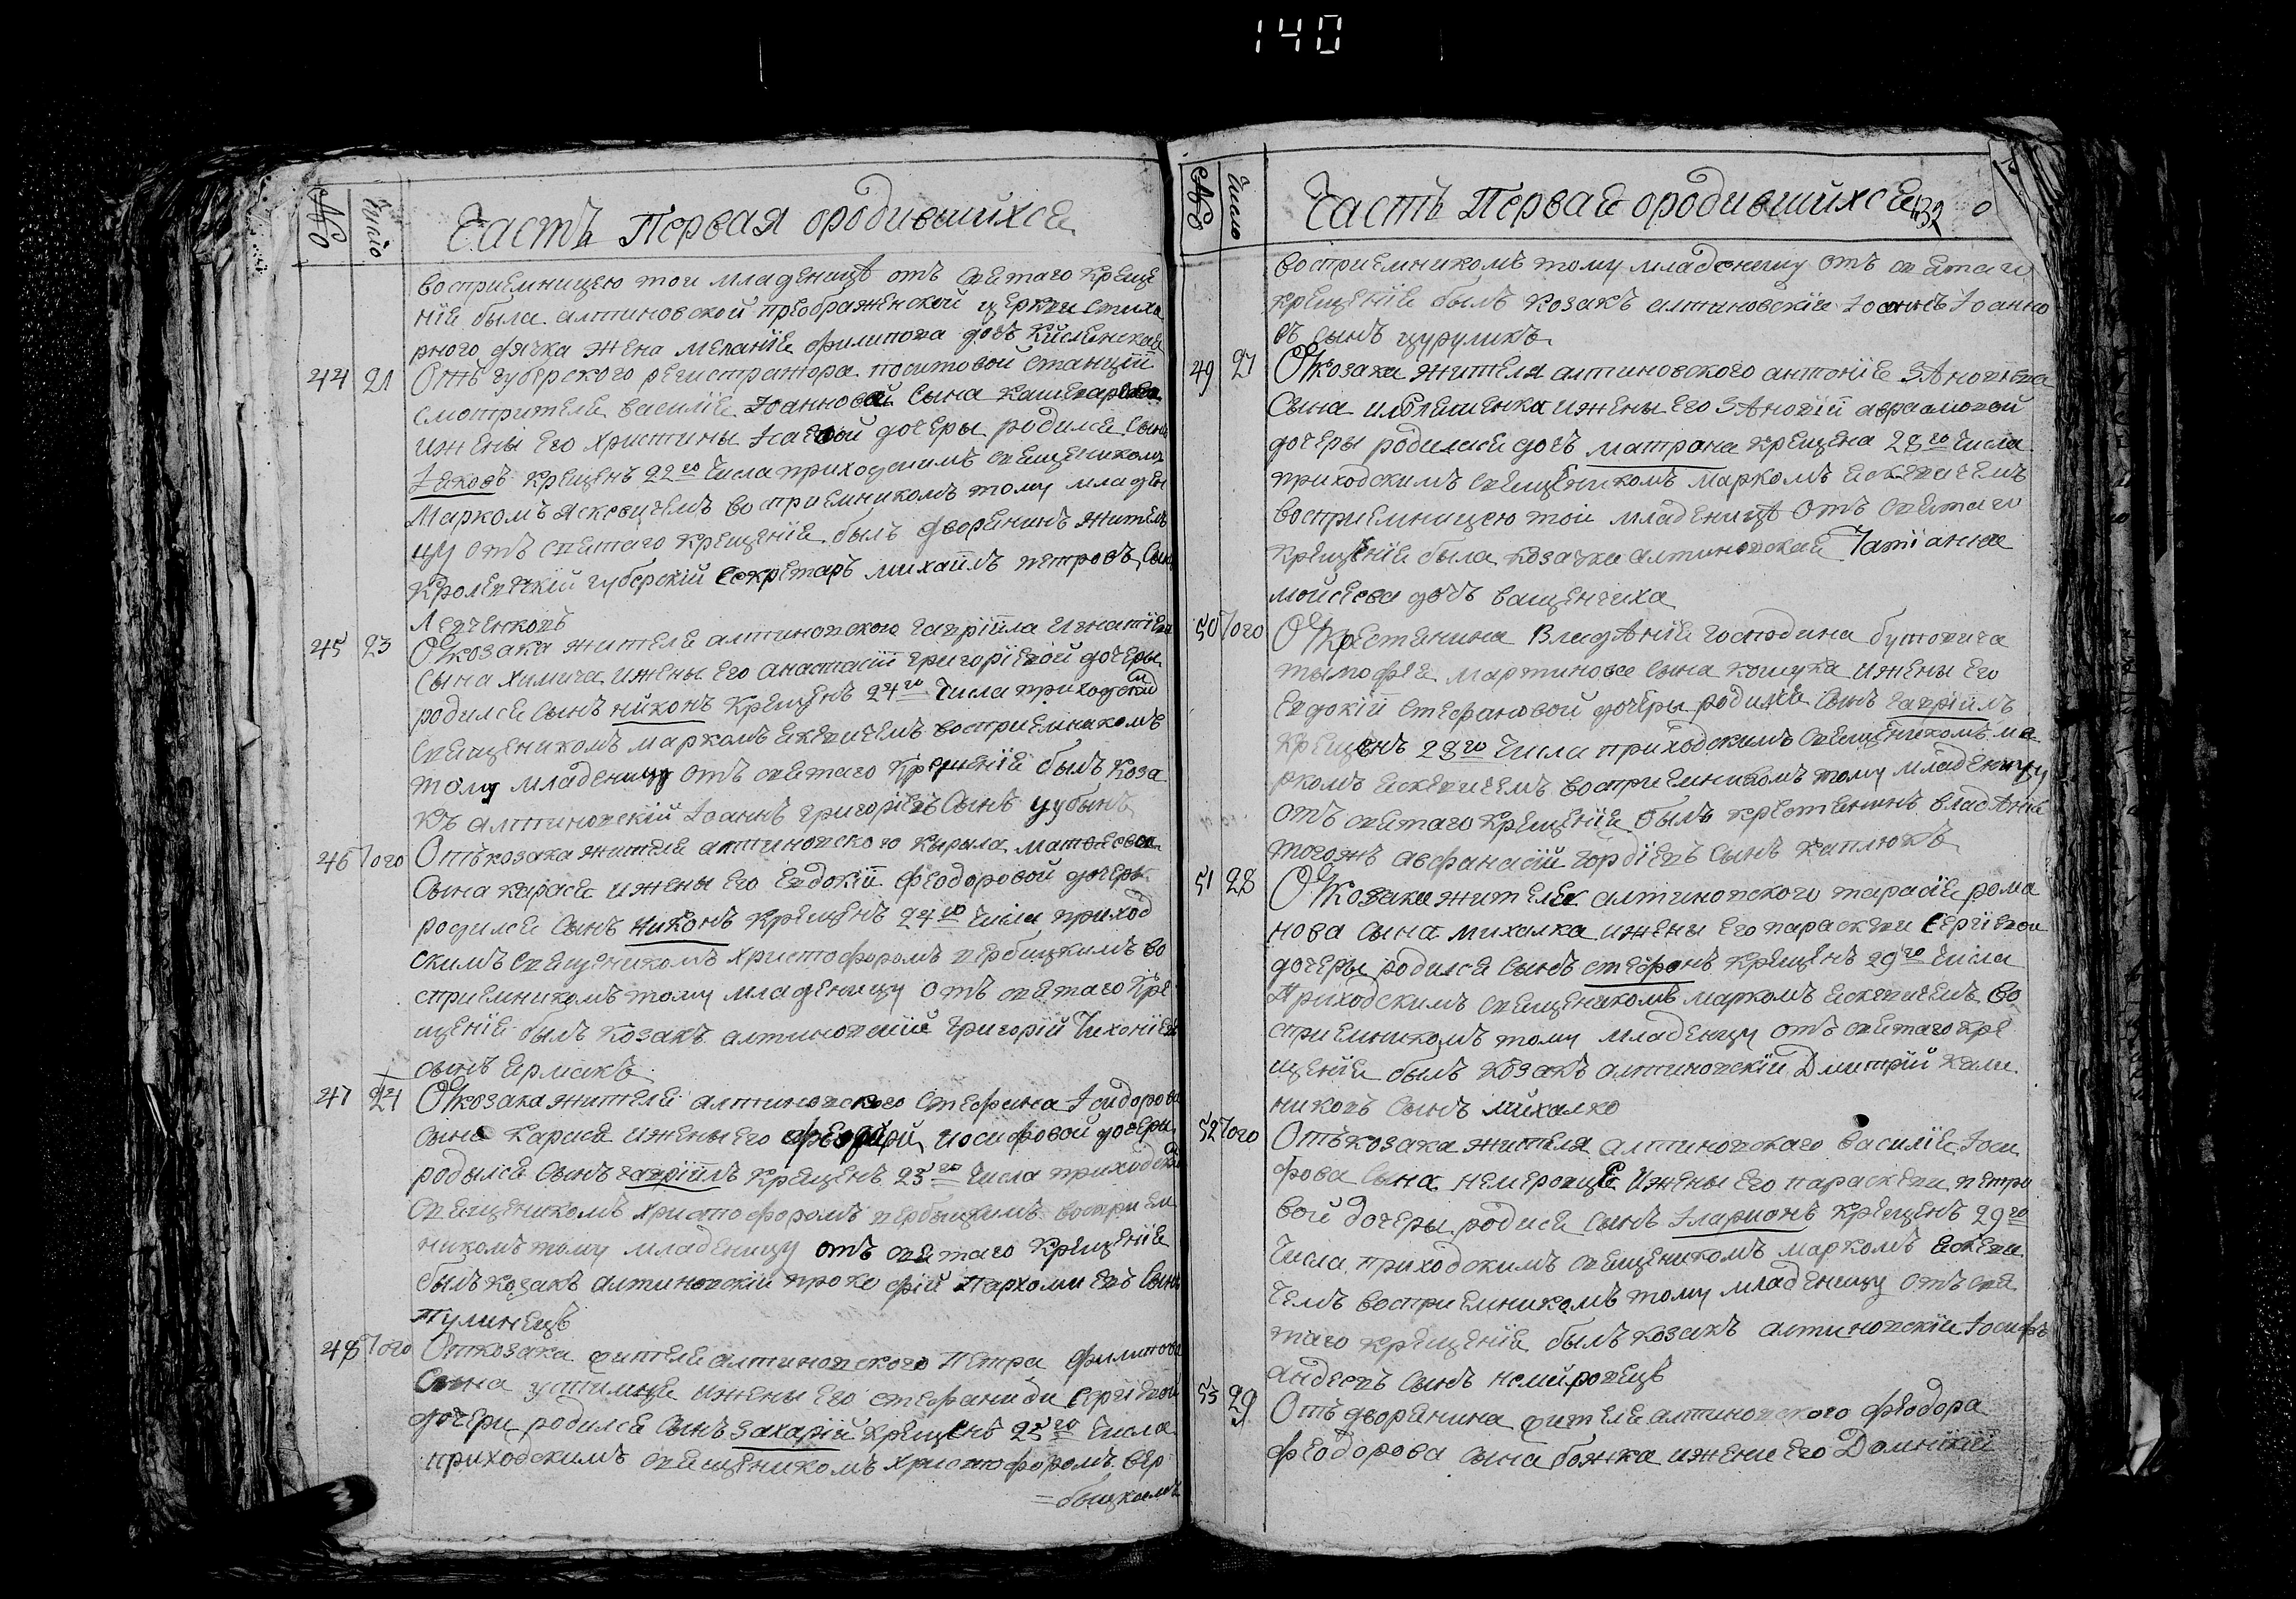 140
№ Число Часть Первая ородившихся
восприемницею тои младеницѣ отъ святаго креще
нія была алтиновской преображенской церкви стиха
рного дячка жена меланія филипова дочъ
44 21 Отъ губерского регистратора поштовой станціи
смотрителя василія Іоанновой сына
ижены его христины дочеры родился сынъ
Іаковъ крещенъ 22го числа приходскимъ священикомъ
Маркомъ Яскевичемъ восприемникомъ тому младен
цу отъ святаго крещенія былъ дворянинъ жителъ
кролевецкій губерскій секретаръ михаилъ петровъ сынъ
Левченковъ
45 23 От козака жителя алтиновского гавріила игнатіева
сына химича ижены его анастасіи григоріевой дочеры
родился сынъ никонъ крещенъ 24го числа приходским
священикомъ маркомъ яскевичемъ восприемникомъ
тому младеницу отъ святаго крещенія былъ коза
къ алтиновскій Іоаннъ григоріевъ сынъ цубынъ
46 Того Отъ козака жителя алтиновского кирила матвеева
сына карася ижены его евдокіи феодоровой дочеры
родился сынъ никонъ крещенъ 24го числа приход
скимъ священикомъ христофоромъ вербицкимъ во
сприемникомъ тому младеницу отъ святаго кре
щенія былъ козакъ алтиновскій григорій Тихоніевъ
сынъ ермакъ
47 24 От козака жителя алтиновского стефана Ісидорова
сына карася ижены его іосифовой дочери
родылся сынъ гавріилъ крещенъ 25го числа приходским
священикомъ христофоромъ вербицкимъ восприем
никомъ тому младеницу отъ святаго крещенія
былъ козакъ алтиновскій прокофій пархоміевъ сынъ
тулинецъ
48 Того От козака жителя алтиновского Петра филипова
сына устимця ижены его стефаниди сергіевой
дочери родился сынъ захарій крещенъ 25го числа
приходскимъ священикомъ христофоромъ вер
=бицкимъ
№ Число Часть Первая ородившихся 132
восприемникомъ тому младеницу отъ святаго
крещенія былъ козакъ алтиновскій Іоаннъ Іоанно
въ сынъ цуруликъ
49 27 От козака жителя алтиновского антонія Зѣновіева
сына ижены его Зѣновіи аврамовой
дочеры родилася дочъ матрона крещена 28го числа
приходскимъ священикомъ маркомъ яскевичемъ
восприемницею тои младеницѣ отъ святаго
крещенія была козачка алтиновская Татіанна
мойсеева дочъ ващенчиха
50 Того От крестянина владѣнія господина бутовича
тымофея мартинова сына кошука ижены его
евдокіи стефановой дочеры родился сынъ гавріилъ
крещенъ 28го числа приходскимъ священикомъ ма
ркомъ яскевичемъ восприемникомъ тому младеницу
отъ святаго крещенія былъ крестянинъ владѣнія
тогожъ афанасій гордіевъ сынъ каплюкъ
51 28 От козака жителя алтиновского тарасія рома
нова сына михалка ижены его параскеви сергіевои
дочеры родился сынъ стефанъ крещенъ 29го числа
приходскимъ священикомъ маркомъ яскевичемъ во
сприемникомъ тому младеницу отъ святаго кре
щенія былъ козакъ алтиновскій Дмитрій кали
никовъ сынъ михалко
52 Того Отъ козака жителя алтиновскаго василія Іоси
фова сына немеровця ижены его параскеви петро
вой дочеры родися сынъ Іларионъ крещенъ 29го
числа приходскимъ священикомъ маркомъ яскеви
чемъ восприемникомъ тому младеницу отъ свя
таго крещенія былъ козакъ алтиновскій Іосифъ
андеевъ сынъ немировецъ
53 29 Отъ дворянина жителя алтиновского феодора
феодорова сына божка ижени его Домникіи